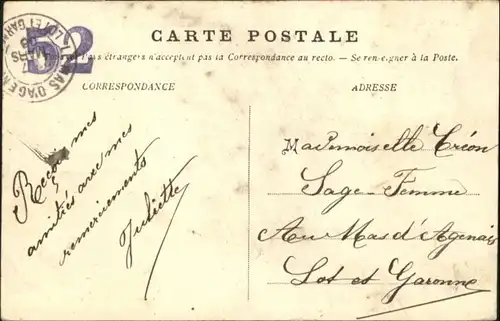 CARTE POSTALE
52
pays étrangers n'acceptent pas la Correspondance au recto. — Se renseigner à la Poste.
CORRESPONDANCE
ADRESSE
MAS D'AGENAIS
MARS
Reçois mes
amitiés avec mes
remerciements
Juliette
Mademoiselle Créon
Sage-Femme
Au Mas d'Agenais
Lot et Garonne